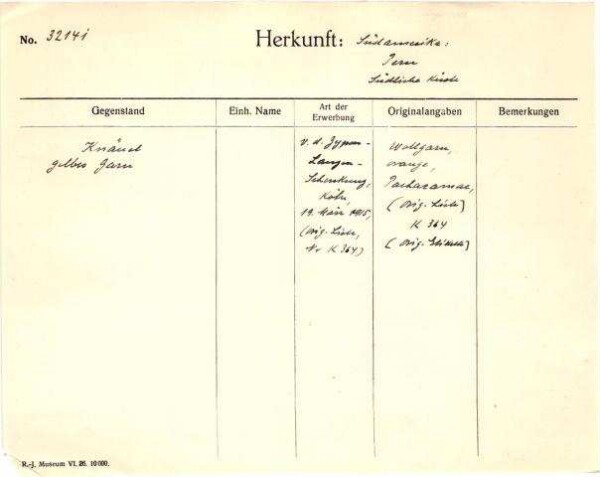 No. 32141
Herkunft: Südamerika:
Peru
Südliche Küste
Gegenstand
Einh. Name
Art der
Erwerbung
Originalangaben
Bemerkungen
Knäuel
gelbes Garn
v. d. Zypen-
Langen-
Schenkung,
Köln,
19. März 1915,
(Orig. Liste,
Nr K 364)
Wollgarn,
orange,
Pachacamac,
(Orig. Liste)
K 364
(Orig. Etikett)
R.-J. Museum VI. 26. 10 000.